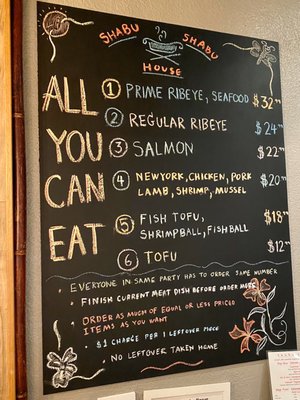 SHABU SHABU
HOUSE
ALL
YOU
CAN
EAT
1 PRIME RIBEYE, SEAFOOD $32.99
2 REGULAR RIBEYE $24.99
3 SALMON $22.99
4 NEWYORK, CHICKEN, PORK $20.99
LAMB, SHRIMP, MUSSEL
5 FISH TOFU, $18.99
SHRIMPBALL, FISHBALL
6 TOFU $12.99
• EVERYONE IN SAME PARTY HAS TO ORDER SAME NUMBER
• FINISH CURRENT MEAT DISH BEFORE ORDER MORE
• ORDER AS MUCH OF EQUAL OR LESS PRICED
ITEMS AS YOU WANT
• $1 CHARGE PER 1 LEFTOVER PIECE
• NO LEFTOVER TAKEN HOME